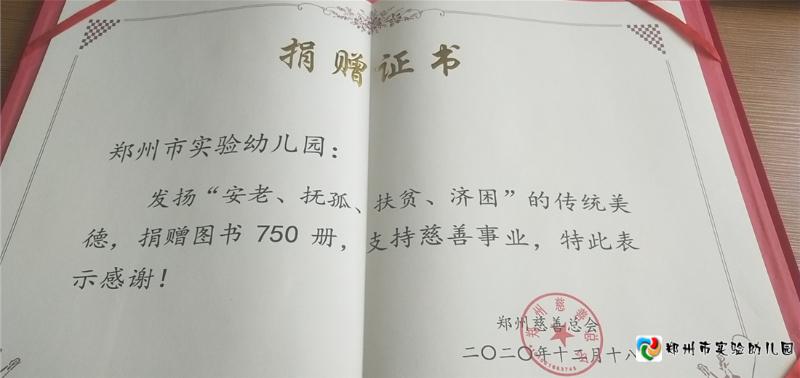 捐赠证书
郑州市实验幼儿园：
发扬“安老、抚孤、扶贫、济困”的传统美
德，捐赠图书 750 册，支持慈善事业，特此表
示感谢！
郑州慈善总会
二〇二〇年十二月十八
郑州市实验幼儿园